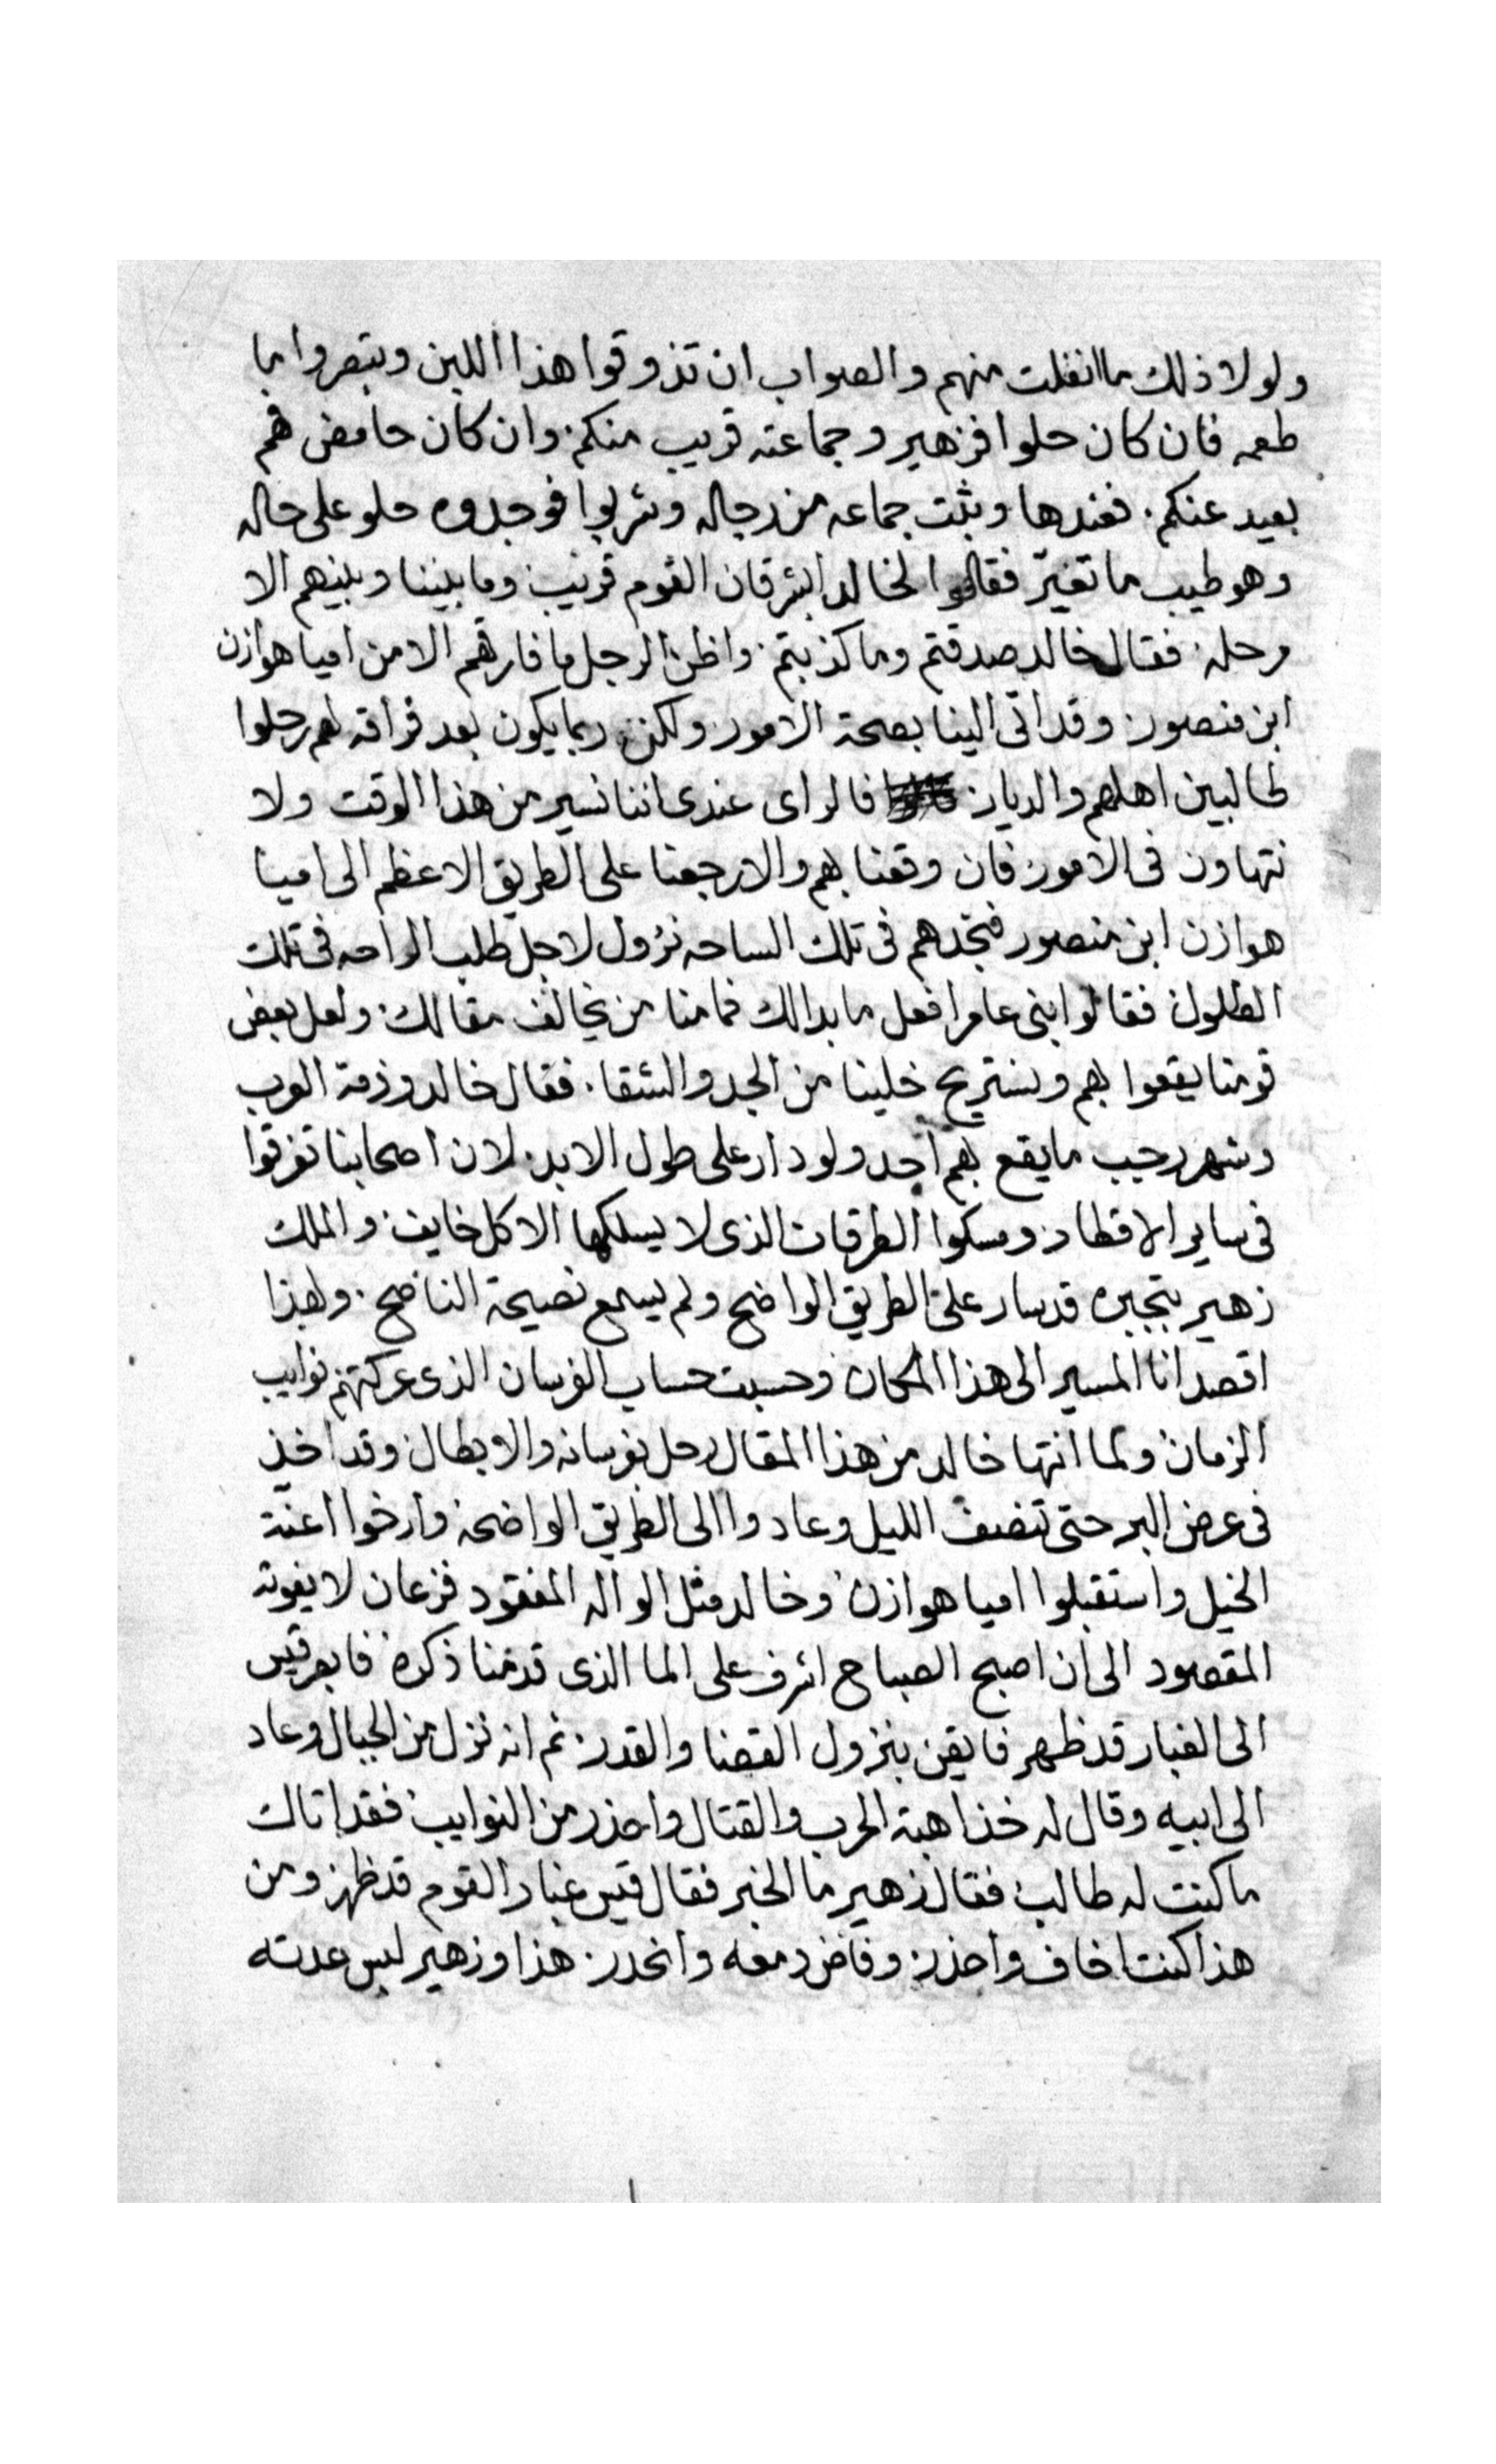 ولولا ذلك ما انفلت منهم والصواب ان تذوقوا هذا اللبن وتبصروا بما
طعمه فان كان حلوا فزهير وجماعته قريب منكم. وان كان حامض فهم
بعيد عنكم. فعندها وثبت جماعه من رجاله وشربوا فوجدوه حلو على حاله
وهو طيب ما تغيّر فقالوا لخالد ابشر فان القوم قريب وما بيننا وبينهم الا
مرحله فقال خالد صدقتم وما كذبتم. واظن الرجل ما فارقهم الا من اميا هوازن
ابن منصور. وقد اتى الينا بصحة الامور. ولكن ربما يكون بعد فراقه لهم رحلوا
طالبين اهلهم والديار. فالراى عندى اننا نسير من هذا الوقت ولا
نتهاون فى الامور فان وقعنا بهم والا رجعنا على الطريق الاعظم الى اميا
هوازن ابن منصور فنجدهم فى تلك الساحه نزول لاجل طلب الراحه فى تلك
الطلول فقالوا بنى عامر افعل ما بدالك فما منا من يخالف مقالك. ولعل بعض
قومنا يقعوا بهم ونستريح خلينا من الجد والشقا. فقال خالد وذمة العرب
وشهر رجب ما يقع بهم احد ولو دار على طول الابد. لان اصحابنا تفرقوا
فى ساير الاقطار ومسكوا الطرقات الذى لا يسلكها الا كل خايف والملك
زهير بتجبره قد سار على الطريق الواضح ولم يسمع نصيحة الناصح. ولهذا
اقصد انا المسير الى هذا المكان وحسبت حساب الفرسان الذى عركتهم نوايب
الزمان ولما انتها خالد من هذا المقال رحل بفرسانه والابطال وقد اخذ
فى عرض البر حتى تنصف الليل وعادوا الى الطريق الواضحه وارخوا اعنة
الخيل واستقبلوا اميا هوازن وخالد مثل الواله المفقود فزعان لا يفوته
المقصود الى ان اصبح الصباح اشرف على الما الذى قدمنا ذكره فابصر قيس
الى الغبار قد ظهر فايقن بنزول القضا والقدر. ثم انه نزل من الجبال وعاد
الى ابيه وقال له خذ اهبة الحرب والقتال واحذر من النوايب فقد اتاك
ما كنت له طالب فقال زهير ما الخبر فقال قيس غبار القوم قد ظهر ومن
هذا كنت اخاف واحذر. وفاض دمعه وانحدر. هذا وزهير لبس عدته